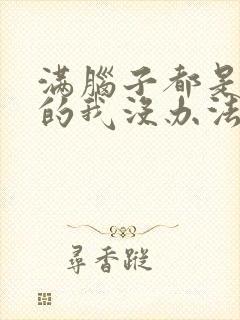 滿腦子都是
的我沒办法
尋香蹤